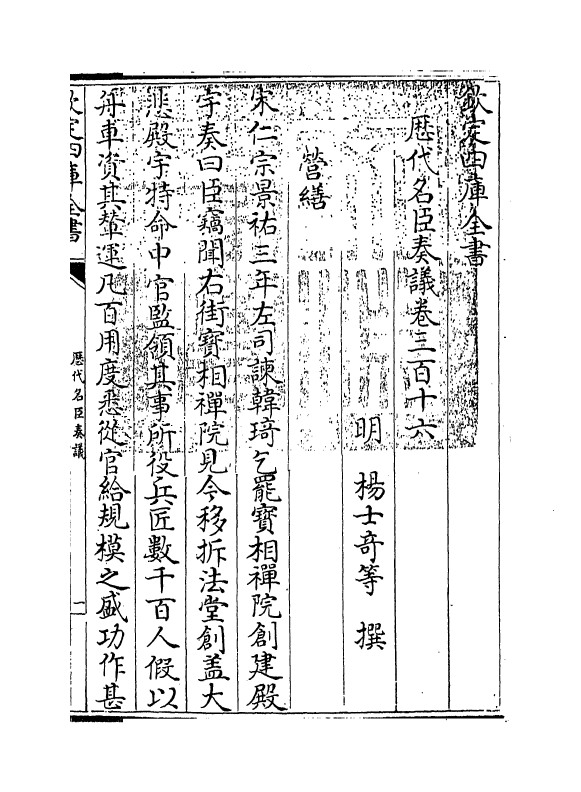 欽定四庫全書
歴代名臣奏議卷三百十六
明　楊士竒等　撰
營繕
宋仁宗景祐三年左司諫韓琦乞罷寶相禪院創建殿
宇奏曰臣竊聞右街寶相禪院見今移拆法堂創蓋大
悲殿宇特命中官監領其事所役兵匠數千百人假以
舟車資其輦運凡百用度悉從官給規模之盛功作甚
欽定四庫全書
歷代名臣奏議
一